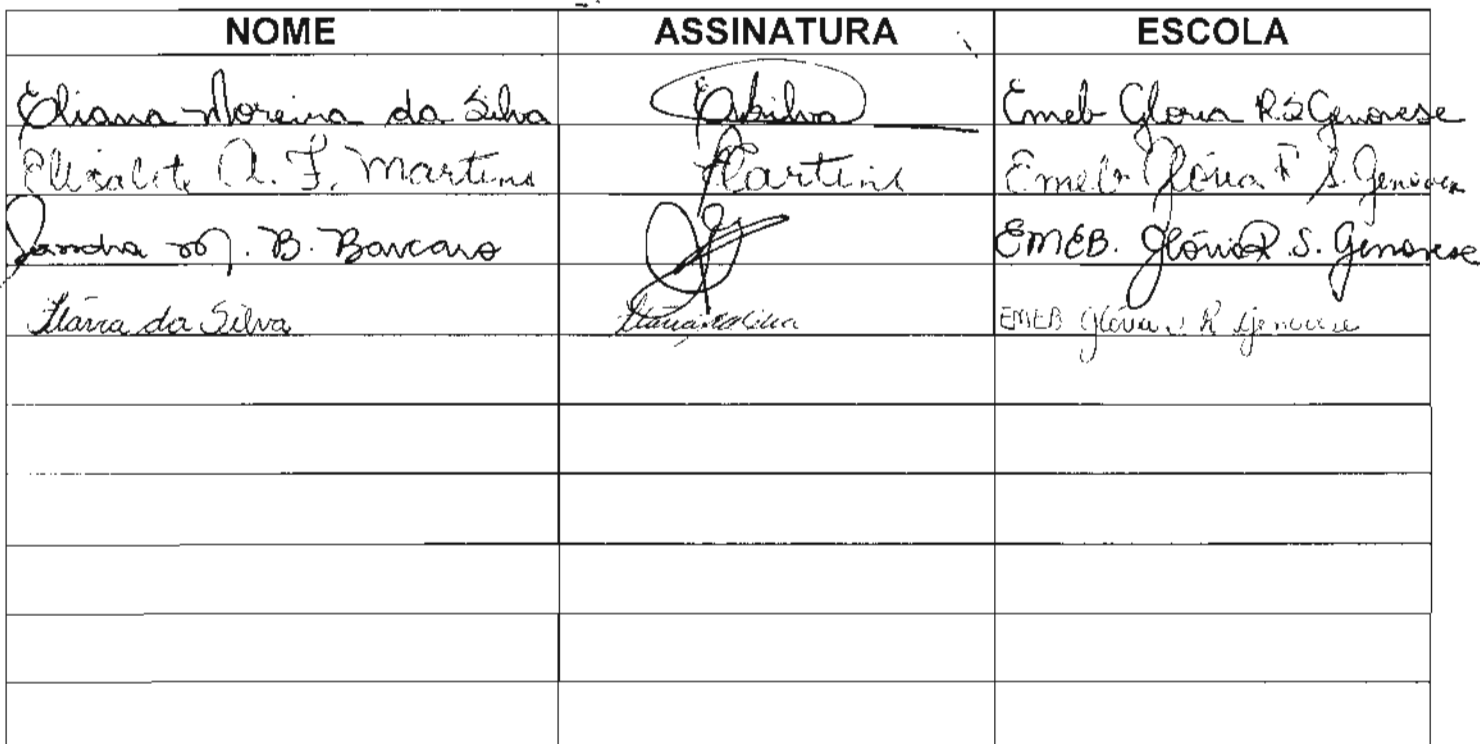 NOME ASSINATURA ESCOLA
Eliana Moreira da Silva EAsilva Emeb Gloria R S Genovese
Elisabete A. F. Martins Martins Emeb Glória R S. Genovese
Sandra M. B. Barcaro EMEB. Glória R. S. Genovese
Flávia da Silva EMEB Glória S R Genovese